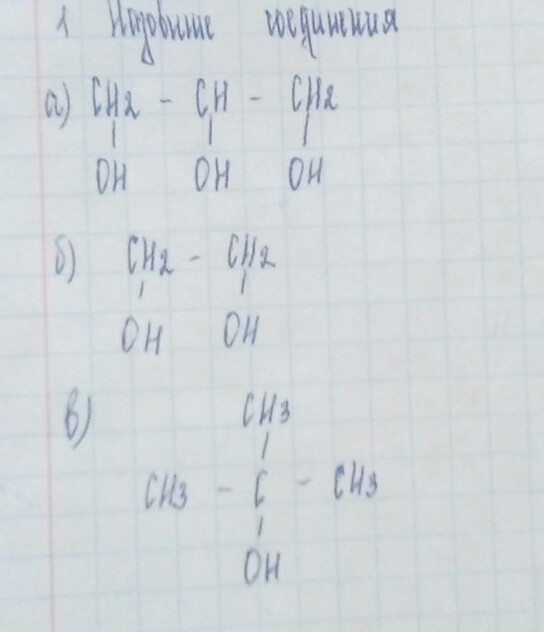 1 Назовите соединения
а) CH2 - CH - CH2
OH OH OH
б) CH2 - CH2
OH OH
в) CH3
CH3 - C - CH3
OH